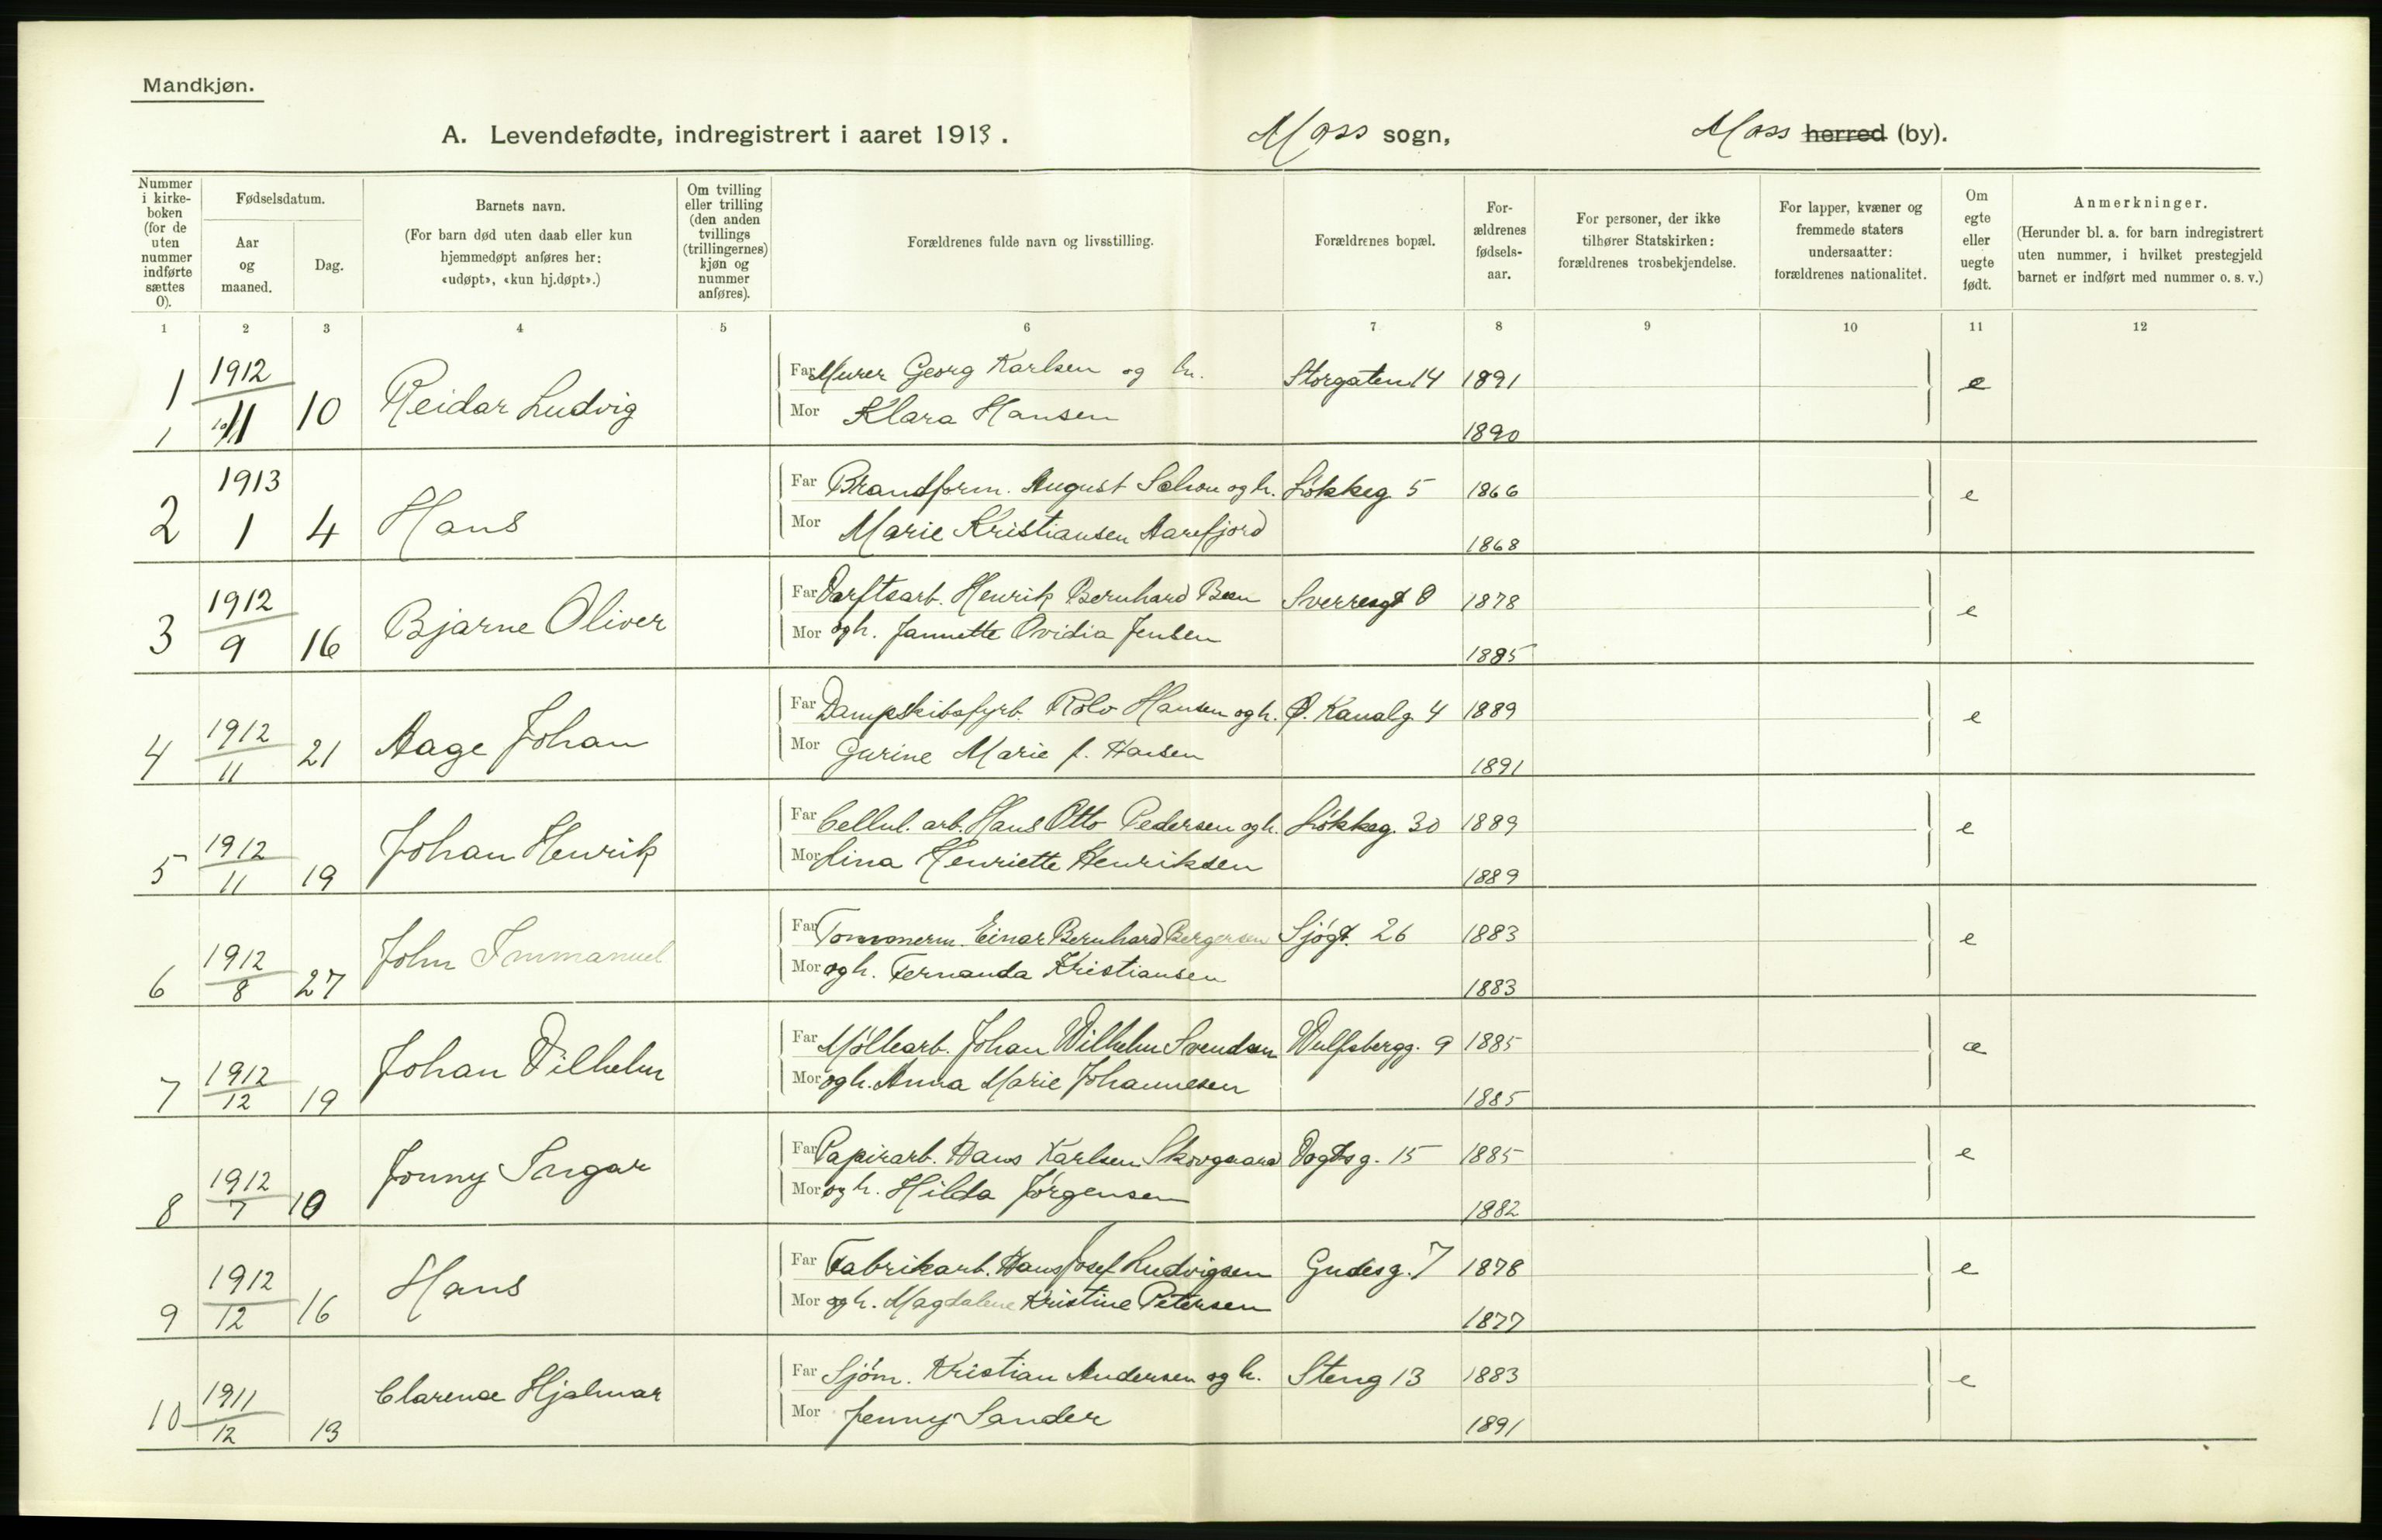 Mandkjøn.
A. Levendefødte, indregistrert i aaret 1913. Moss sogn, Moss herred (by).
Nummer i kirkeboken (for de uten nummer indførte sættes 0).
Fødselsdatum.
Aar og maaned.
Dag.
Barnets navn.
(For barn død uten daab eller kun hjemmedøpt anføres her: «udøpt», «kun hj.døpt».)
Om tvilling eller trilling (den anden tvillings (trillingernes) kjøn og nummer anføres).
Forældrenes fulde navn og livsstilling.
Forældrenes bopæl.
Forældrenes fødselsaar.
For personer, der ikke tilhører Statskirken: forældrenes trosbekjendelse.
For lapper, kvæner og fremmede staters undersaatter: forældrenes nationalitet.
Om egte eller uegte født.
Anmerkninger.
(Herunder bl. a. for barn indregistrert uten nummer, i hvilket prestegjeld barnet er indført med nummer o. s. v.)
1 2 3 4 5 6 7 8 9 10 11 12
1 1912 11 10 Reidar Ludvig Far Murer Georg Karlsen og h. Storgaten 14 1891 e
1 Mor Klara Hansen 1890
2 1913 1 4 Hans Far Brandform. August Schou og h. Løkkeg. 5 1866 e
Mor Marie Kristiansen Aarefjord 1868
3 1912 9 16 Bjarne Oliver Far Henrik Bernhard Sverresgt 1878 e
Mor og h. Jannette Ovidia Jensen 1885
4 1912 11 21 Aage Johan Far Dampskibsfyrb. Rolv Hansen og h. Ø. Kanalg. 4 1889 e
Mor Gurine Marie f. Hansen 1891
5 1912 11 19 Johan Henrik Far Cellul. arb. Hans Otto Pedersen og h. Løkkeg. 30 1889 e
Mor Lina Henriette Henriksen 1889
6 1912 8 27 John Immanuel Far Tømmerm. Einar Bernhard Bergersen Sjøgt. 26 1883 e
Mor og h. Fernanda Kristiansen 1883
7 1912 12 19 Johan Vilhelm Far Møllearb. Johan Wilhelm Svendsen Wulfsbergg. 9 1885 e
Mor og h. Anna Marie Johannesen 1885
8 1912 7 10 Jonny Ingar Far Papirarb. Hans Karlsen Skovgaard Vogtsg. 15 1885 e
Mor og h. Hilda Jørgensen 1882
9 1912 12 16 Hans Far Fabrikarb. Hans Josef Ludvigsen Gudesg. 7 1878 e
Mor og h. Magdalene Kristine Petersen 1877
10 1911 12 13 Clarence Hjalmar Far Sjøm. Kristian Andersen og h. Steng 13 1883 e
Mor Jenny Sander 1891